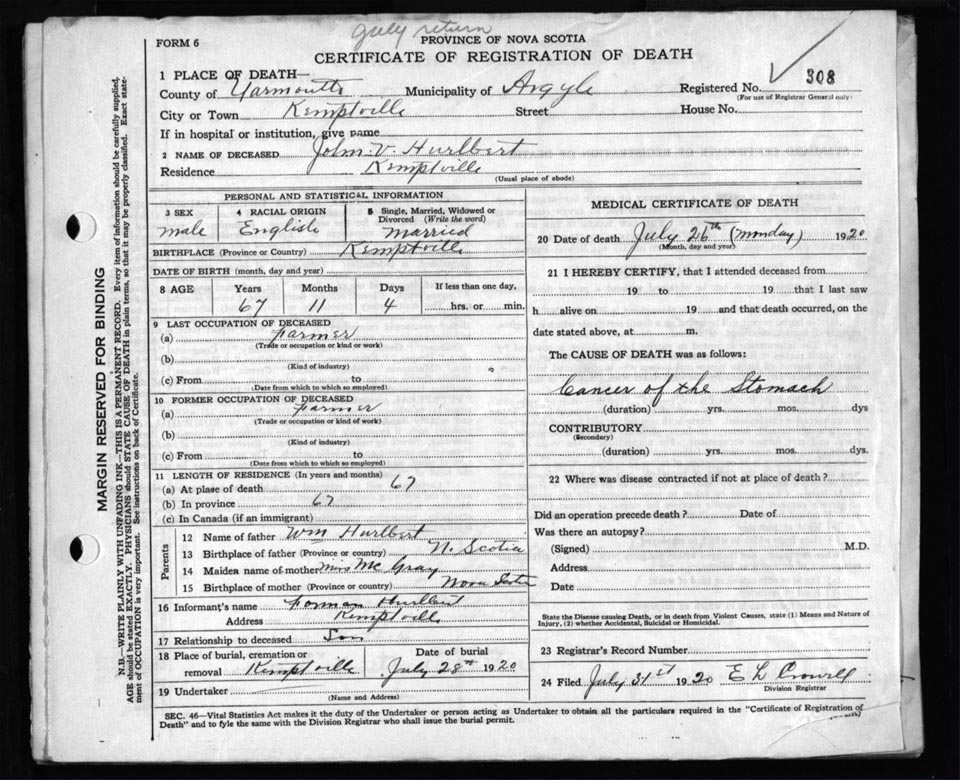 July return
FORM 6
PROVINCE OF NOVA SCOTIA
CERTIFICATE OF REGISTRATION OF DEATH
308
1 PLACE OF DEATH—
County of Yarmouth Municipality of Argyle Registered No.
(For use of Registrar General only)
City or Town Kemptville Street House No.
If in hospital or institution, give name
2 NAME OF DECEASED John V. Hurlbert
Residence Kemptville
(Usual place of abode)
MARGIN RESERVED FOR BINDING
N.B.—WRITE PLAINLY WITH UNFADING INK—THIS IS A PERMANENT RECORD. Every item of information should be carefully supplied.
AGE should be stated EXACTLY. PHYSICIANS should STATE CAUSE OF DEATH in plain terms, so that it may be properly classified. Exact state-
ment of OCCUPATION is very important. See instructions on back of Certificate.
PERSONAL AND STATISTICAL INFORMATION
3 SEX male
4 RACIAL ORIGIN English
5 Single, Married, Widowed or
Divorced (Write the word)
Married
BIRTHPLACE (Province or Country) Kemptville
DATE OF BIRTH (month, day and year)
8 AGE Years Months Days If less than one day,
67 11 4 hrs. or min.
9 LAST OCCUPATION OF DECEASED
(a) Farmer
(Trade or occupation or kind or work)
(b)
(Kind of industry)
(c) From to
(Date from which to which so employed)
10 FORMER OCCUPATION OF DECEASED
(a) Farmer
(Trade or occupation or kind of work)
(b)
(Kind of industry)
(c) From to
(Date from which to which so employed)
11 LENGTH OF RESIDENCE (In years and months)
(a) At place of death 67
(b) In province 67
(c) In Canada (if an immigrant)
Parents
12 Name of father Wm Hurlbert
13 Birthplace of father (Province or country) N. Scotia
14 Maiden name of mother Miss Mc Gray
15 Birthplace of mother (Province or country) Nova Scotia
16 Informant's name Forman Hurlbert
Address Kemptville
17 Relationship to deceased Son
18 Place of burial, cremation or Date of burial
removal Kemptville July 28th 1920
19 Undertaker
(Name and Address)
MEDICAL CERTIFICATE OF DEATH
20 Date of death July 26th (Monday) 1920
(Month, day and year)
21 I HEREBY CERTIFY, that I attended deceased from
19 to 19 that I last saw
h alive on 19 and that death occurred, on the
date stated above, at m.
The CAUSE OF DEATH was as follows:
Cancer of the Stomach
(duration) yrs. mos. dys
CONTRIBUTORY
(Secondary)
(duration) yrs. mos. dys.
22 Where was disease contracted if not at place of death?
Did an operation precede death? Date of
Was there an autopsy?
(Signed) M.D.
Address
Date
State the Disease causing Death, or in death from Violent Causes, state (1) Means and Nature of
Injury, (2) whether Accidental, Suicidal or Homicidal.
23 Registrar's Record Number
24 Filed July 31st 1920 E L Crowell
Division Registrar
SEC. 46—Vital Statistics Act makes it the duty of the Undertaker or person acting as Undertaker to obtain all the particulars required in the "Certificate of Registration of
Death" and to fyle the same with the Division Registrar who shall issue the burial permit.